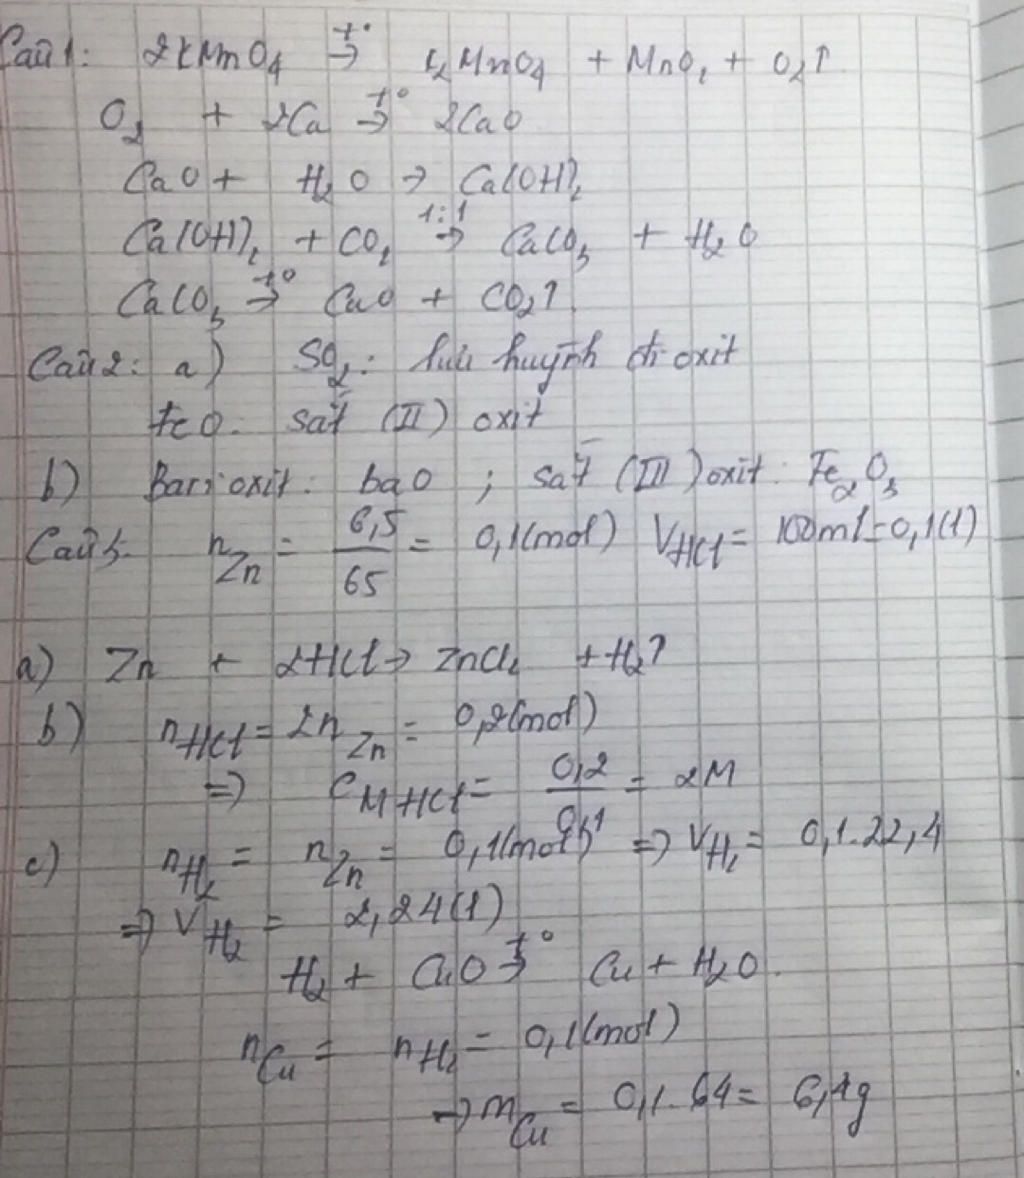 Câu 1: 2KMnO₄ →t° K₂MnO₄ + MnO₂ + O₂↑
O₂ + 2Ca →t° 2CaO
CaO + H₂O → Ca(OH)₂
Ca(OH)₂ + CO₂ →1:1 CaCO₃ + H₂O
CaCO₃ →t° CaO + CO₂↑
Câu 2: a) SO₂: lưu huỳnh đi oxit
FeO. sắt (II) oxit
b) Bari oxit: baO ; sắt (III) oxit: Fe₂O₃
Câu 3. n_Zn = 6,5/65 = 0,1(mol) V_HCl = 100ml = 0,1(l)
a) Zn + 2HCl → ZnCl₂ + H₂↑
b) n_HCl = 2n_Zn = 0,2(mol)
=> C_M HCl = 0,2/0,1 = 2M
c) n_H₂ = n_Zn = 0,1(mol) => V_H₂ = 0,1.22,4
=> V_H₂ = 2,24(l)
H₂ + CuO →t° Cu + H₂O.
n_Cu = n_H₂ = 0,1(mol)
→ m_Cu = 0,1.64 = 6,4g